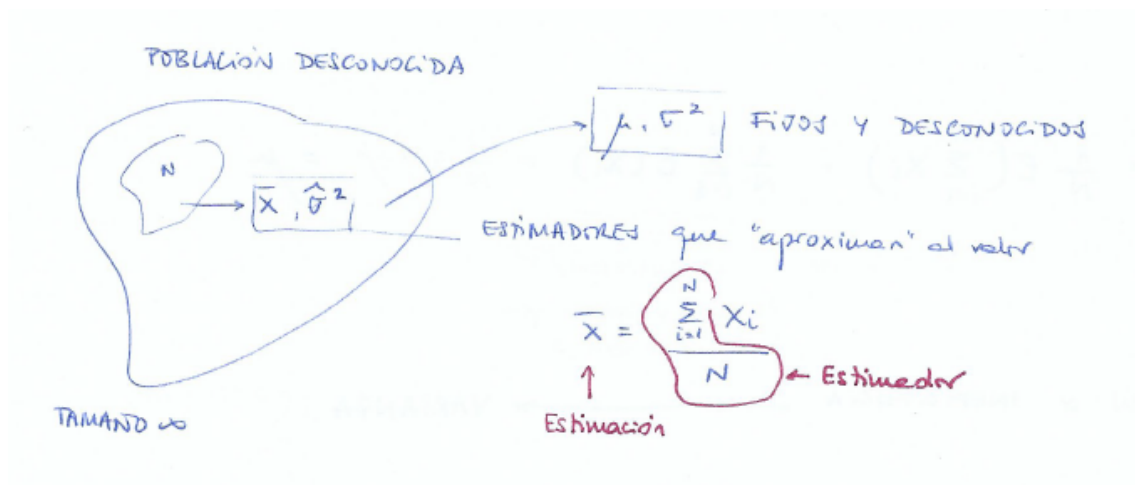 POBLACIÓN DESCONOCIDA
μ, σ² FIJOS Y DESCONOCIDOS
N
x̄, σ̂²
ESTIMADORES que "aproximan" al valor
x̄ = \frac{\sum_{i=1}^{N} x_i}{N}
← Estimador
↑
Estimación
TAMAÑO ∞